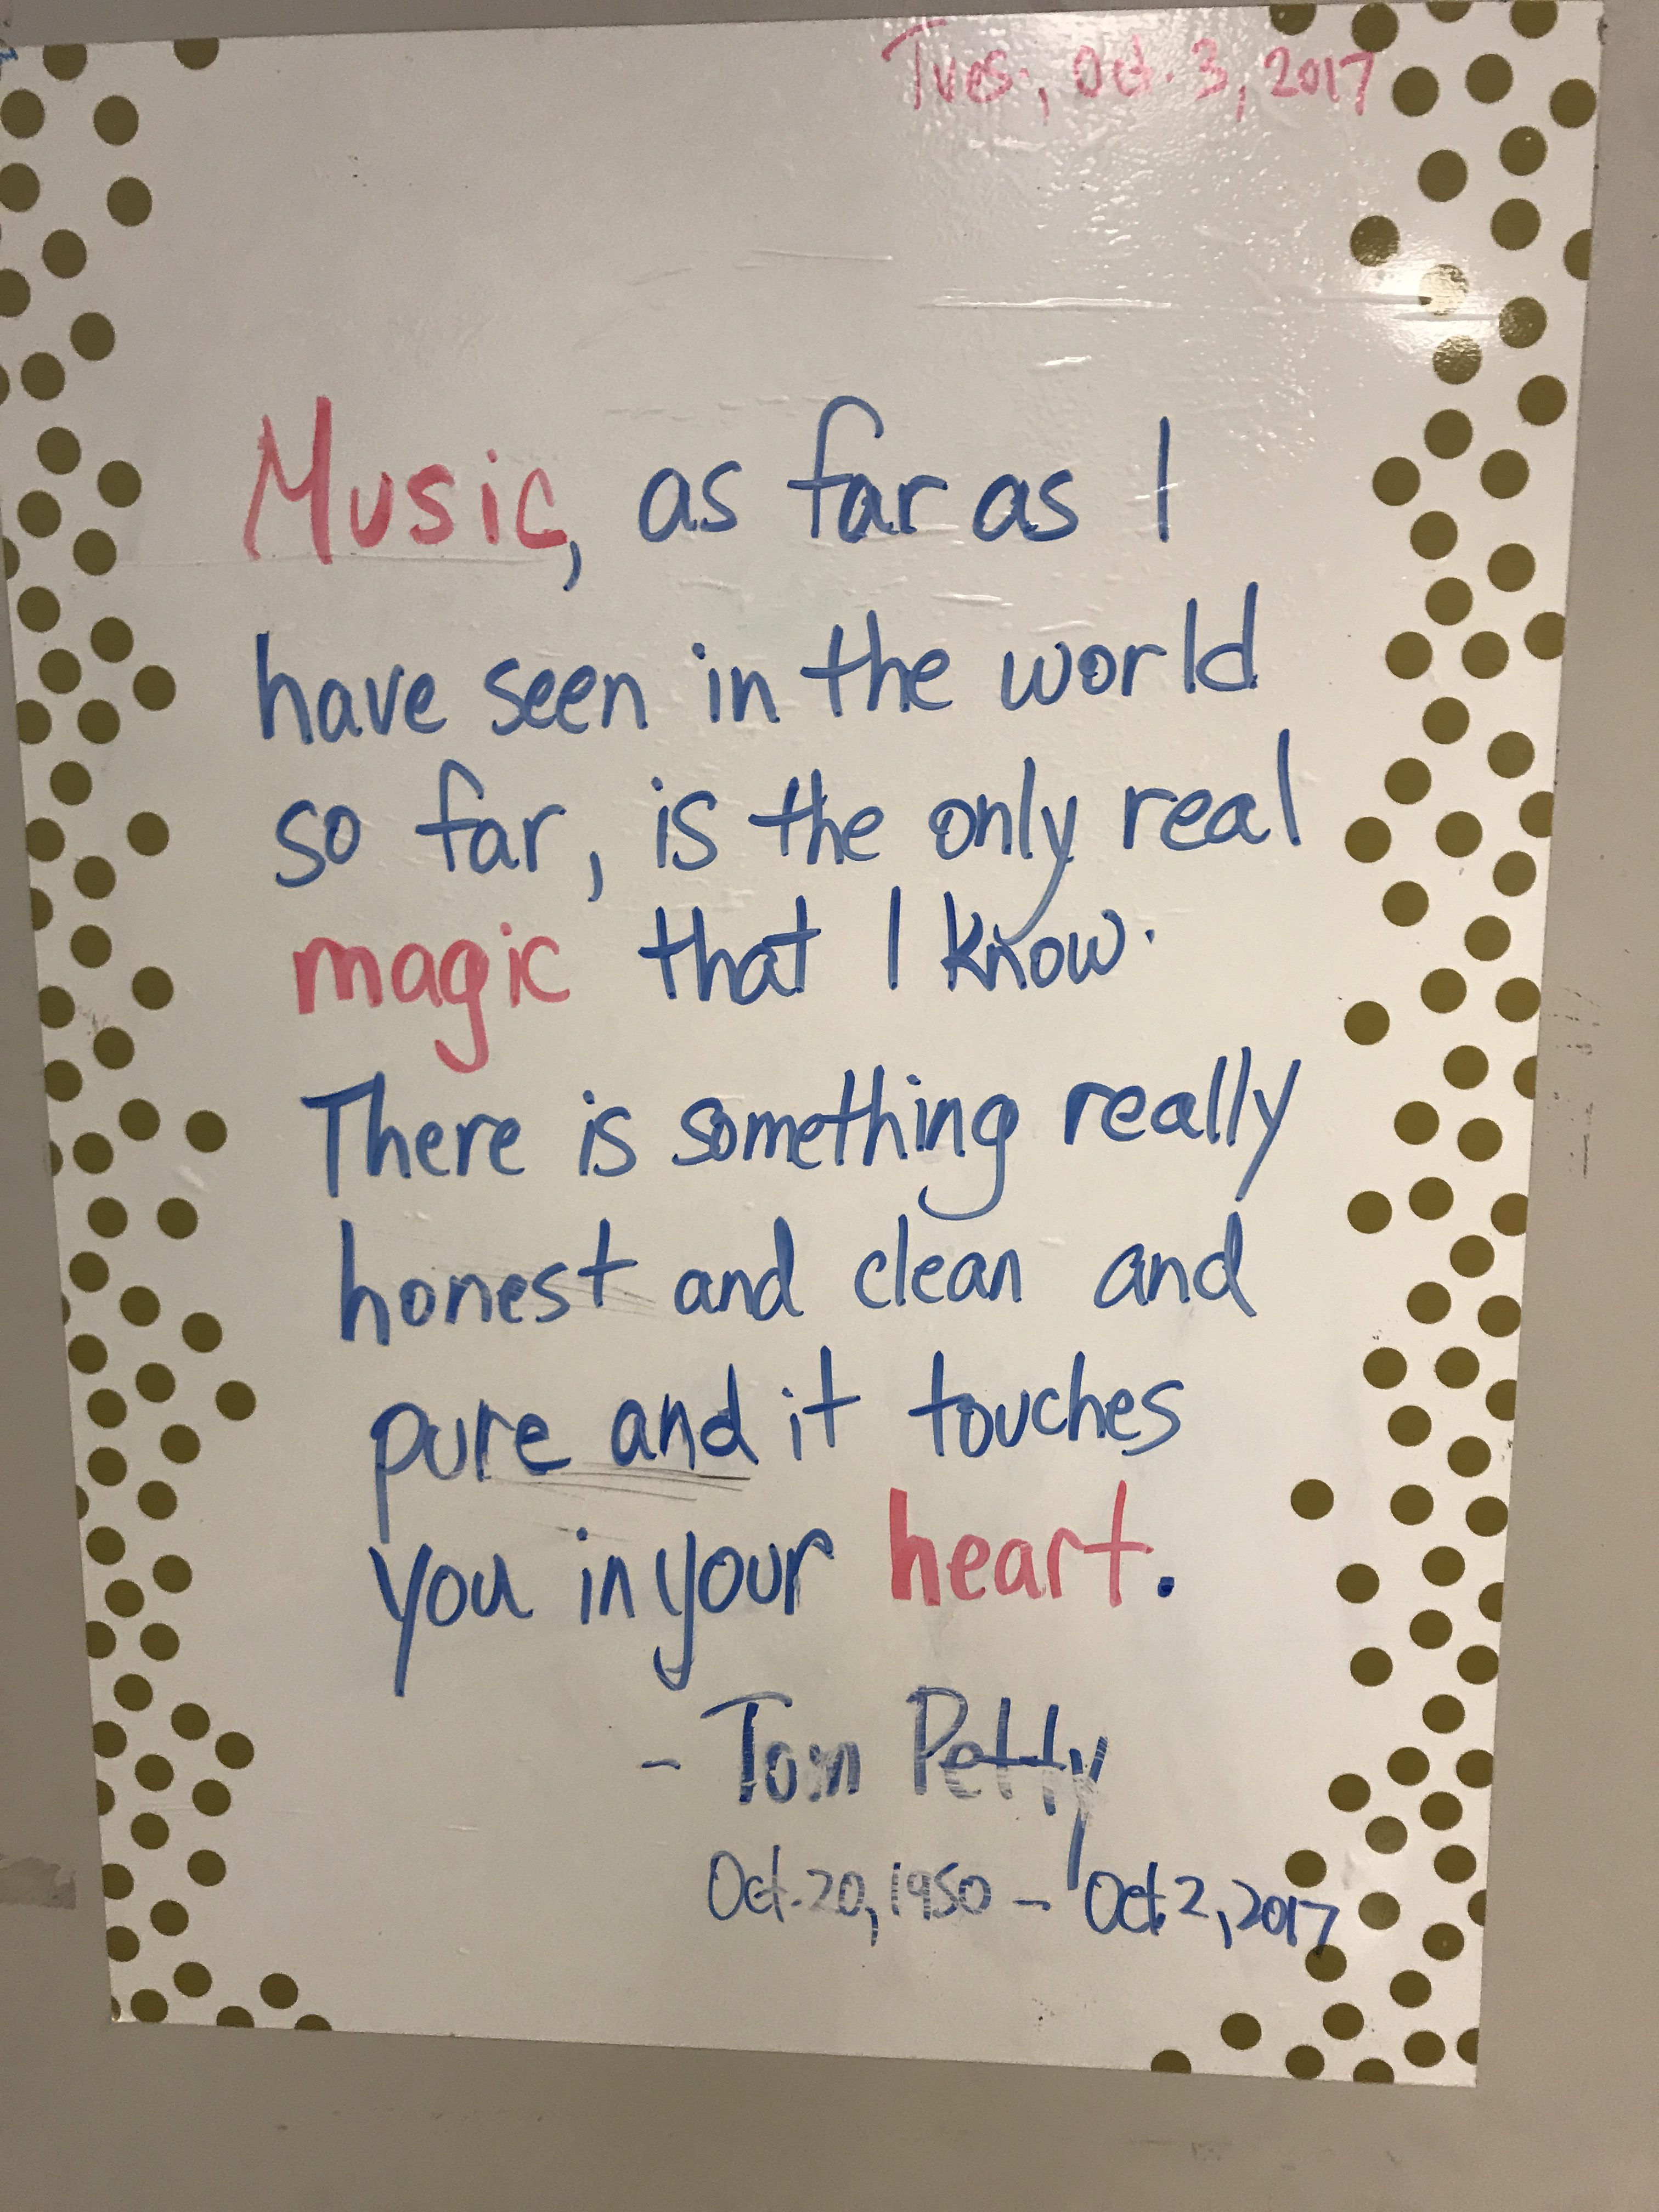 Tues, Oct. 3, 2017
Music, as far as I
have seen in the world
so far, is the only real
magic that I know.
There is something really
honest and clean and
pure and it touches
you in your heart.
- Tom Petty
Oct. 20, 1950 - Oct. 2, 2017